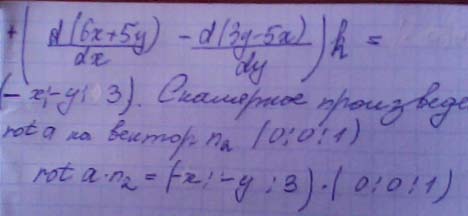 + ( d(6x+5y)/dx - d(3y-5x)/dy ) k =
(-x; -y; 3). Скалярное произведе
rot a на вектор n₂ (0; 0; 1)
rot a · n₂ = (-x; -y; 3) · (0; 0; 1)